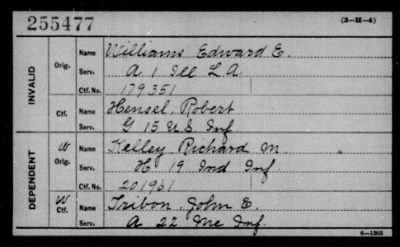 255477 (3-H-4)
INVALID
Orig. Name Williams Edward E.
Serv. A 1 Ill L.A.
Ctf. No. 179351
Ctf. Name Hensel, Robert
Serv. G 15 U.S. Inf
DEPENDENT
W Orig. Name Kelley, Richard M.
Serv. H 19 Ind Inf.
Ctf. No. 201961
W Ctf. Name Tribon, John E.
Serv. A 22 Me Inf.
6-1385